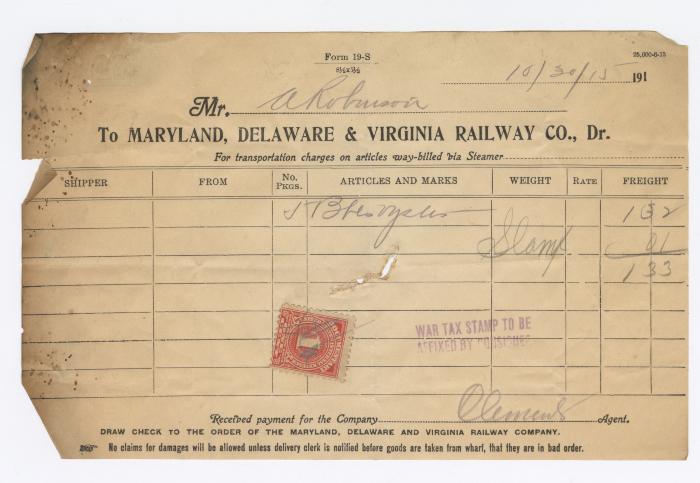 Form 19-S
8½x5½
25,000-6-15
10/30/15 191
Mr. A Robinson
To MARYLAND, DELAWARE & VIRGINIA RAILWAY CO., Dr.
For transportation charges on articles way-billed via Steamer
SHIPPER FROM No. Pkgs. ARTICLES AND MARKS WEIGHT RATE FREIGHT
5 Bbls Oysters 1 32
Stamp 01
1 33
WAR TAX STAMP TO BE
AFFIXED BY CONSIGNEE
Received payment for the Company Clements Agent.
DRAW CHECK TO THE ORDER OF THE MARYLAND, DELAWARE AND VIRGINIA RAILWAY COMPANY.
No claims for damages will be allowed unless delivery clerk is notified before goods are taken from wharf, that they are in bad order.